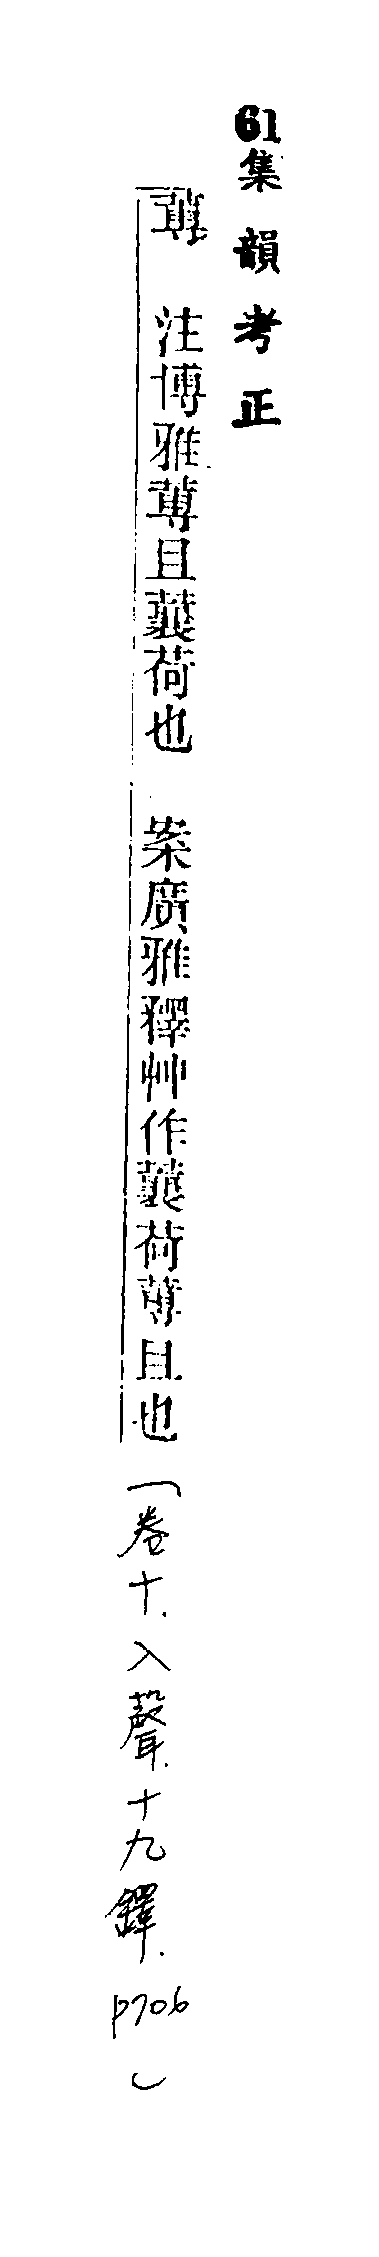 61集韻考正
注博雅蒪且蘘荷也 案廣雅釋艸作蘘荷蒪且也(卷十.入聲.十九鐸.p706)